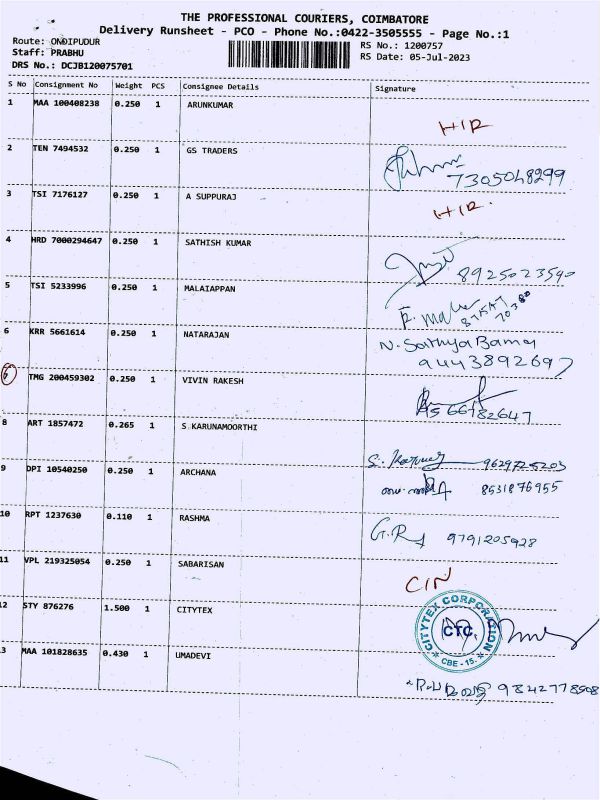 THE PROFESSIONAL COURIERS, COIMBATORE
Delivery Runsheet - PCO - Phone No.:0422-3505555 - Page No.:1
Route: ONDIPUDUR
RS No.: 1200757
Staff: PRABHU
RS Date: 05-Jul-2023
DRS No.: DCJB120075701
S No Consignment No Weight PCS Consignee Details Signature
1 MAA 100408238 0.250 1 ARUNKUMAR
HIR
2 TEN 7494532 0.250 1 GS TRADERS
7305048299
3 TSI 7176127 0.250 1 A SUPPURAJ
HIR.
4 HRD 7000294647 0.250 1 SATHISH KUMAR
8925023590
5 TSI 5233996 0.250 1 MALAIAPPAN
6 KRR 5661614 0.250 1 NATARAJAN
N. Sathya Bama
9443892697
TMG 200459302 0.250 1 VIVIN RAKESH
8 ART 1857472 0.265 1 S.KARUNAMOORTHI
9629725203
9 DPI 10540250 0.250 1 ARCHANA
8531876955
10 RPT 1237630 0.110 1 RASHMA
9791205928
11 VPL 219325054 0.250 1 SABARISAN
CIN
12 STY 876276 1.500 1 CITYTEX
CITYTEX CORPORATION
CTC
CBE - 15.
13 MAA 101828635 0.430 1 UMADEVI